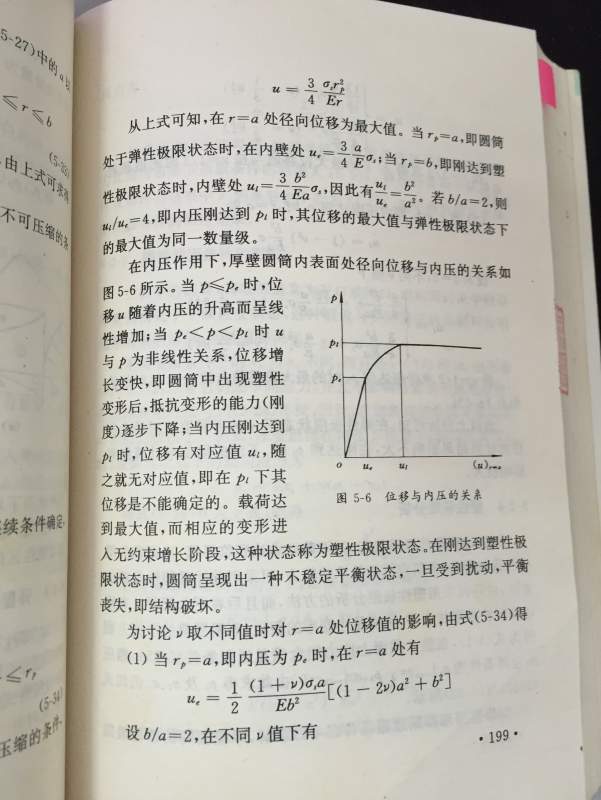 5-27)中的a以
≤r≤b
(5-35)
由上式可求得
不可压缩的条
续条件确定,
≤r_p
(5-34)
压缩的条件,
u = \frac{3}{4} \frac{σ_s r_p^2}{Er}
从上式可知,在 r=a 处径向位移为最大值。当 r_p=a,即圆筒
处于弹性极限状态时,在内壁处 u_e=\frac{3}{4}\frac{a}{E}σ_s;当 r_p=b,即刚达到塑
性极限状态时,内壁处 u_l=\frac{3}{4}\frac{b^2}{Ea}σ_s,因此有\frac{u_l}{u_e}=\frac{b^2}{a^2}。若 b/a=2,则
u_l/u_e=4,即内压刚达到 p_l 时,其位移的最大值与弹性极限状态下
的最大值为同一数量级。
在内压作用下,厚壁圆筒内表面处径向位移与内压的关系如
图 5-6 所示。当 p≤p_e 时,位
移 u 随着内压的升高而呈线
性增加;当 p_e<p<p_l 时 u
与 p 为非线性关系,位移增
长变快,即圆筒中出现塑性
变形后,抵抗变形的能力(刚
度)逐步下降;当内压刚达到
p_l 时,位移有对应值 u_l,随
之就无对应值,即在 p_l 下其
位移是不能确定的。载荷达
到最大值,而相应的变形进
p
p_l
p_e
o
u_e
u_l
(u)_{r=a}
图 5-6 位移与内压的关系
入无约束增长阶段,这种状态称为塑性极限状态。在刚达到塑性极
限状态时,圆筒呈现出一种不稳定平衡状态,一旦受到扰动,平衡
丧失,即结构破坏。
为讨论 ν 取不同值时对 r=a 处位移值的影响,由式(5-34)得
(1) 当 r_p=a,即内压为 p_e 时,在 r=a 处有
u_e = \frac{1}{2} \frac{(1+ν)σ_s a}{Eb^2}[(1-2ν)a^2+b^2]
设 b/a=2,在不同 ν 值下有
·199·